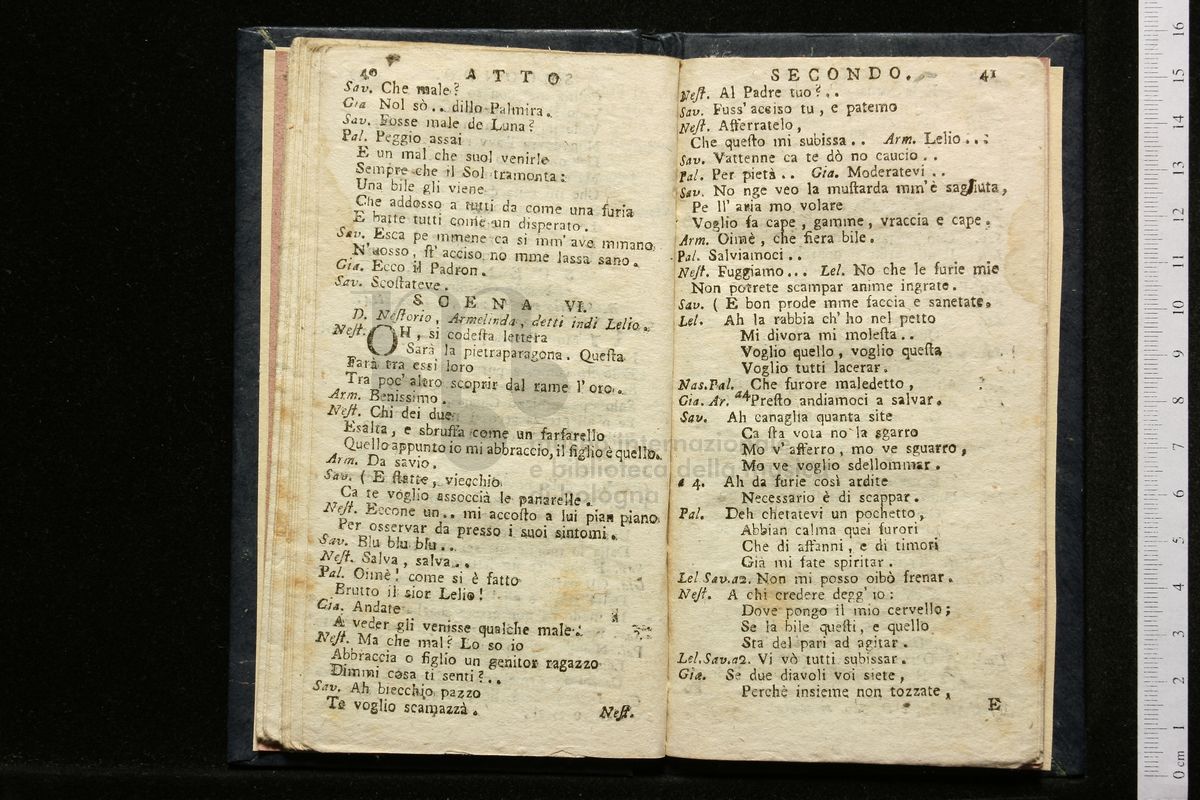 40 ATTO
Sav. Che male?
Gia Nol sò.. dillo Palmira.
Sav. Fosse male de Luna?
Pal. Peggio assai
E un mal che suol venirle
Sempre che il Sol tramonta:
Una bile gli viene
Che addosso a tutti da come una furia
E batte tutti come un disperato.
Sav. Esca pe mmene ca si mm'ave mmano
N'uosso, st'acciso no mme lassa sano.
Gia. Ecco il Padron.
Sav. Scostateve.
SCENA VI.
D. Nestorio, Armelinda, detti indi Lelio.
Nest. OH, si codesta lettera
Sarà la pietraparagona. Questa
Farà tra essi loro
Tra poc' altro scoprir dal rame l'oro.
Arm. Benissimo.
Nest. Chi dei due
Esalta, e sbruffa come un farfarello
Quello appunto io mi abbraccio, il figlio è quello.
Arm. Da savio.
Sav. (E statte, viecchio
Ca te voglio assoccià le panarelle.
Nest. Eccone un.. mi accosto a lui pian piano
Per osservar da presso i suoi sintomi.
Sav. Blu blu blu...
Nest. Salva, salva..
Pal. Oimè! come si è fatto
Brutto il sior Lelio!
Gia. Andate
A veder gli venisse qualche male.
Nest. Ma che mal? Lo so io
Abbraccia o figlio un genitor ragazzo
Dimmi cosa ti senti?..
Sav. Ah biecchio pazzo
Te voglio scamazzà.
Nest.
SECONDO. 41
Nest. Al Padre tuo?..
Sav. Fuss' acciso tu, e patemo
Nest. Afferratelo,
Che questo mi subissa.. Arm. Lelio..:
Sav. Vattenne ca te dò no caucio..
Pal. Per pietà.. Gia. Moderatevi..
Sav. No nge veo la mustarda mm'è sagliuta,
Pe ll' aria mo volare
Voglio fa cape, gamme, vraccia e cape.
Arm. Oimè, che fiera bile.
Pal. Salviamoci..
Nest. Fuggiamo... Lel. No che le furie mie
Non potrete scampar anime ingrate.
Sav. (E bon prode mme faccia e sanetate.
Lel. Ah la rabbia ch' ho nel petto
Mi divora mi molesta..
Voglio quello, voglio questa
Voglio tutti lacerar.
Nas.Pal. Che furore maledetto,
Gia. Ar. a4 Presto andiamoci a salvar.
Sav. Ah canaglia quanta site
Ca sta vota no la sgarro
Mo v' afferro, mo ve sguarro,
Mo ve voglio sdellommar.
a 4. Ah da furie così ardite
Necessario è di scappar.
Pal. Deh chetatevi un pochetto,
Abbian calma quei furori
Che di affanni, e di timori
Già mi fate spiritar.
Lel Sav.a2. Non mi posso oibò frenar.
Nest. A chi credere degg' io:
Dove pongo il mio cervello;
Se la bile questi, e quello
Sta del pari ad agitar.
Lel.Sav.a2. Vi vò tutti subissar.
Gia. Se due diavoli voi siete,
Perchè insieme non tozzate,
E